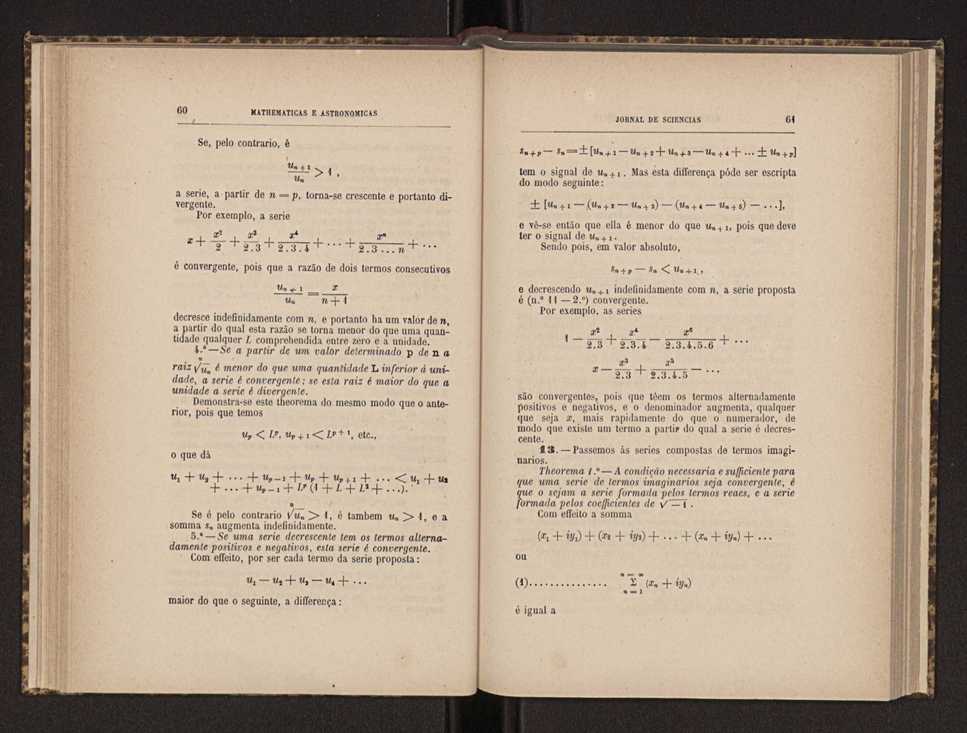 60 MATHEMATICAS E ASTRONOMICAS
Se, pelo contrario, é
u_{n+1}/u_n > 1 ,
a serie, a partir de n = p, torna-se crescente e portanto di-
vergente.
Por exemplo, a serie
x + x²/2 + x³/2.3 + x⁴/2.3.4 + ... + xⁿ/2.3...n + ...
é convergente, pois que a razão de dois termos consecutivos
u_{n+1}/u_n = x/n+1
decresce indefinidamente com n, e portanto ha um valor de n,
a partir do qual esta razão se torna menor do que uma quan-
tidade qualquer L comprehendida entre zero e a unidade.
4.º — Se a partir de um valor determinado p de n a
raiz ⁿ√u_n é menor do que uma quantidade L inferior á uni-
dade, a serie é convergente; se esta raiz é maior do que a
unidade a serie é divergente.
Demonstra-se este theorema do mesmo modo que o ante-
rior, pois que temos
u_p < L^p, u_{p+1} < L^{p+1}, etc.,
o que dà
u₁ + u₂ + ... + u_{p-1} + u_p + u_{p+1} + ... < u₁ + u₂
+ ... + u_{p-1} + L^p (1 + L + L² + ...).
Se é pelo contrario ⁿ√u_n > 1, é tambem u_n > 1, e a
somma s_n augmenta indefinidamente.
5.º — Se uma serie decrescente tem os termos alterna-
damente positivos e negativos, esta serie é convergente.
Com effeito, por ser cada termo da serie proposta:
u₁ — u₂ + u₃ — u₄ + ...
maior do que o seguinte, a differença:
JORNAL DE SCIENCIAS 61
s_{n+p} — s_n = ± [u_{n+1} — u_{n+2} + u_{n+3} — u_{n+4} + ... ± u_{n+p}]
tem o signal de u_{n+1}. Mas esta differença póde ser escripta
do modo seguinte:
± [u_{n+1} — (u_{n+2} — u_{n+3}) — (u_{n+4} — u_{n+5}) — ...],
e vê-se então que ella é menor do que u_{n+1}, pois que deve
ter o signal de u_{n+1}.
Sendo pois, em valor absoluto,
s_{n+p} — s_n < u_{n+1},
e decrescendo u_{n+1} indefinidamente com n, a serie proposta
é (n.º 11 — 2.º) convergente.
Por exemplo, as series
1 — x²/2.3 + x⁴/2.3.4 — x⁶/2.3.4.5.6 + ...
x — x³/2.3 + x⁵/2.3.4.5 — ...
são convergentes, pois que têem os termos alternadamente
positivos e negativos, e o denominador augmenta, qualquer
que seja x, mais rapidamente do que o numerador, de
modo que existe um termo a partir do qual a serie é decres-
cente.
13. — Passemos ás series compostas de termos imagi-
narios.
Theorema 1.º — A condição necessaria e sufficiente para
que uma serie de termos imaginarios seja convergente, é
que o sejam a serie formada pelos termos reaes, e a serie
formada pelos coefficientes de √—1 .
Com effeito a somma
(x₁ + iy₁) + (x₂ + iy₂) + ... + (x_n + iy_n) + ...
ou
(1)............... Σ_{n=1}^{n=∞} (x_n + iy_n)
é igual a